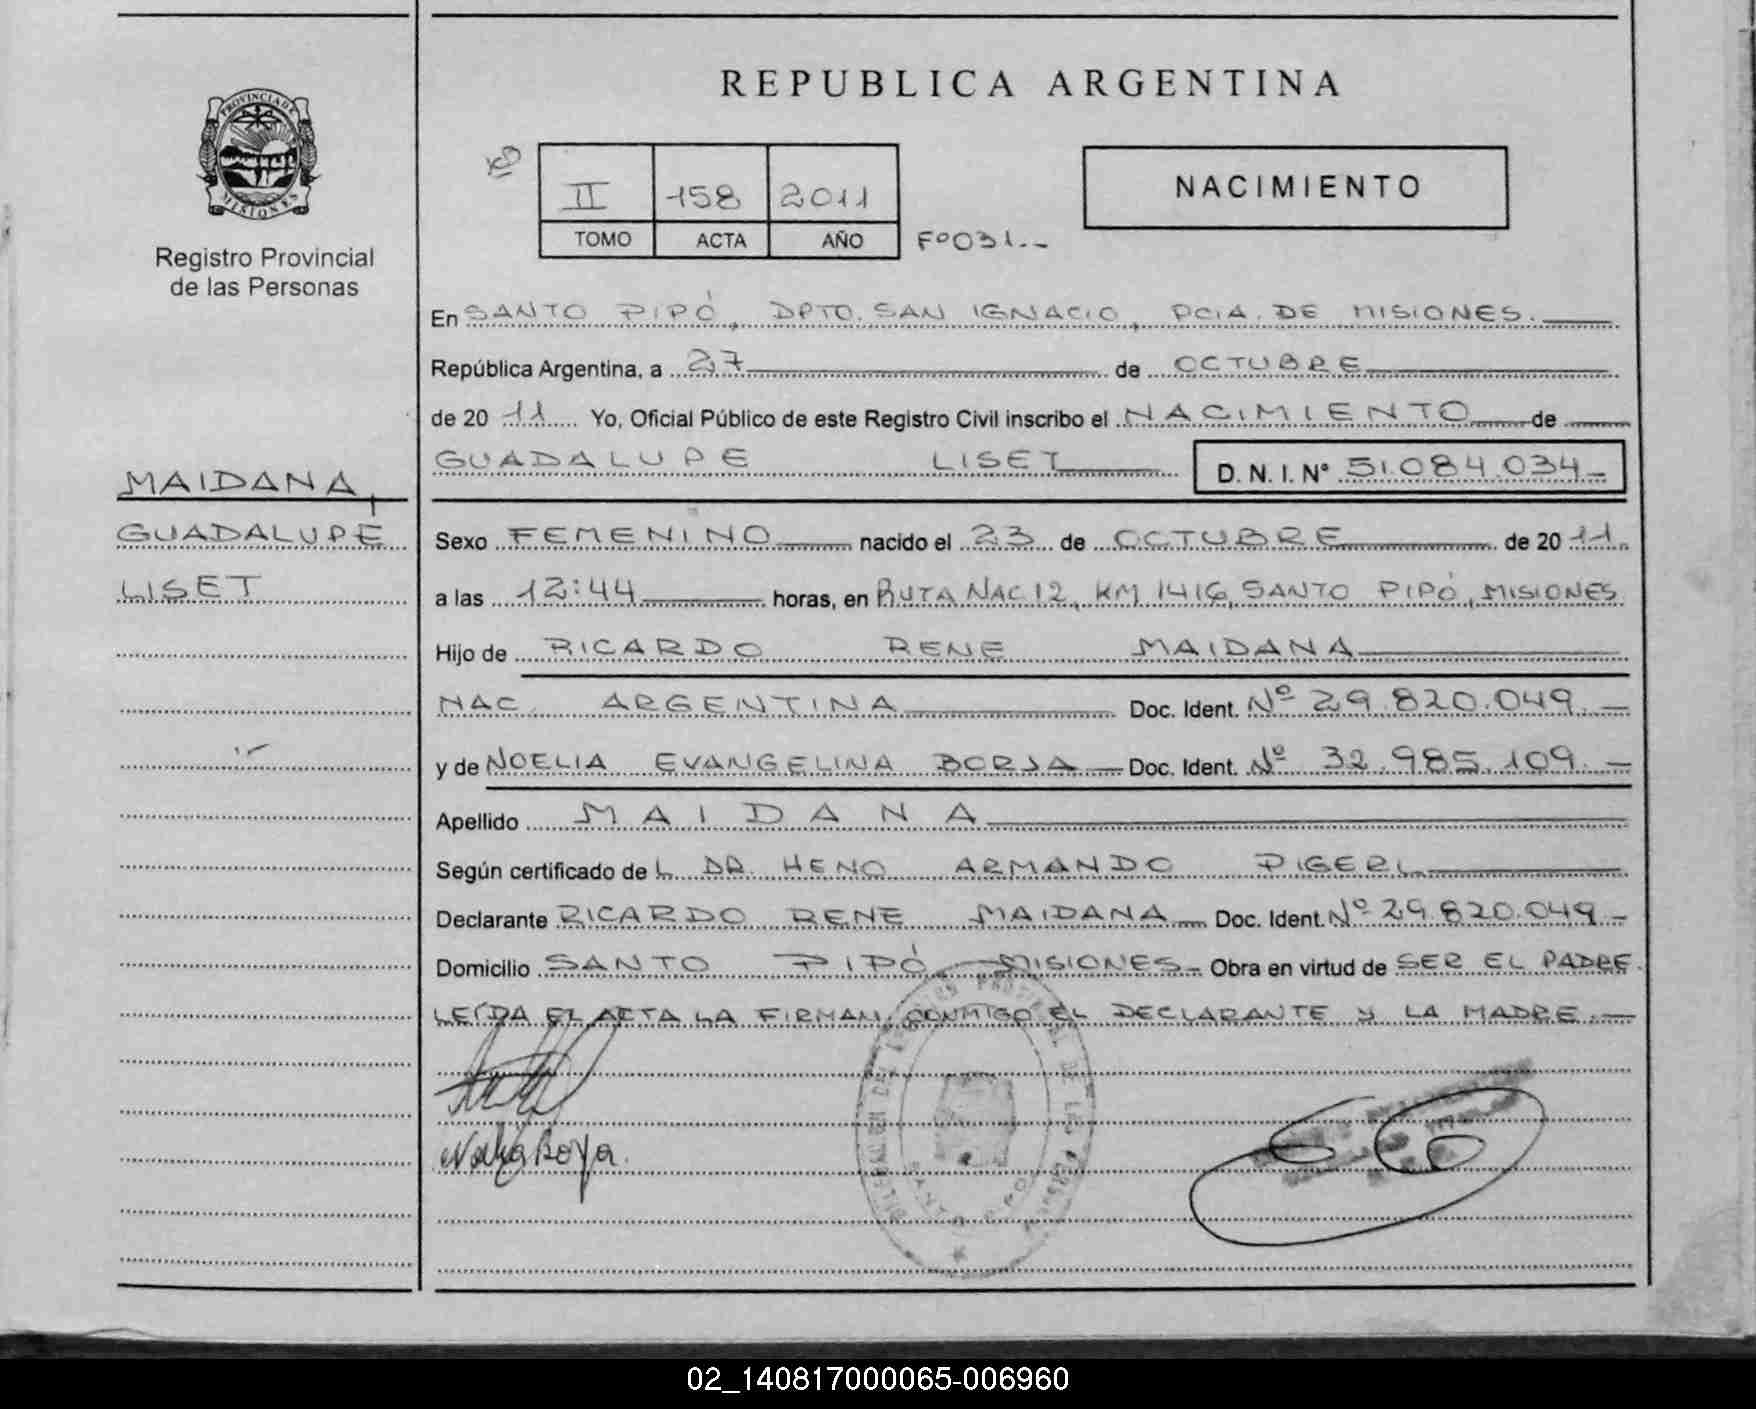 REPUBLICA ARGENTINA
PROVINCIA DE
MISIONES
Registro Provincial
de las Personas
II 158 2011
TOMO ACTA AÑO Fº031.-
NACIMIENTO
MAIDANA,
GUADALUPE
LISET
En SANTO PIPÓ, DPTO. SAN IGNACIO, PCIA. DE MISIONES.
República Argentina, a 27 de OCTUBRE
de 20 11 Yo, Oficial Público de este Registro Civil inscribo el NACIMIENTO de
GUADALUPE LISET D. N. I. Nº 51.084.034-
Sexo FEMENINO nacido el 23 de OCTUBRE de 20 11.
a las 12:44 horas, en RUTA NAC 12, KM 1416, SANTO PIPÓ, MISIONES
Hijo de RICARDO RENE MAIDANA
NAC. ARGENTINA Doc. Ident. Nº 29.820.049.-
y de NOELIA EVANGELINA BORJA Doc. Ident. Nº 32.985.109.-
Apellido MAIDANA
Según certificado de L DR. HENO ARMANDO PIGERL
Declarante RICARDO RENE MAIDANA Doc. Ident. Nº 29.820.049-
Domicilio SANTO PIPÓ MISIONES- Obra en virtud de SER EL PADRE.
LEÍDA EL ACTA LA FIRMAN CONMIGO EL DECLARANTE Y LA MADRE.-
SANTO PIPO
02_140817000065-006960